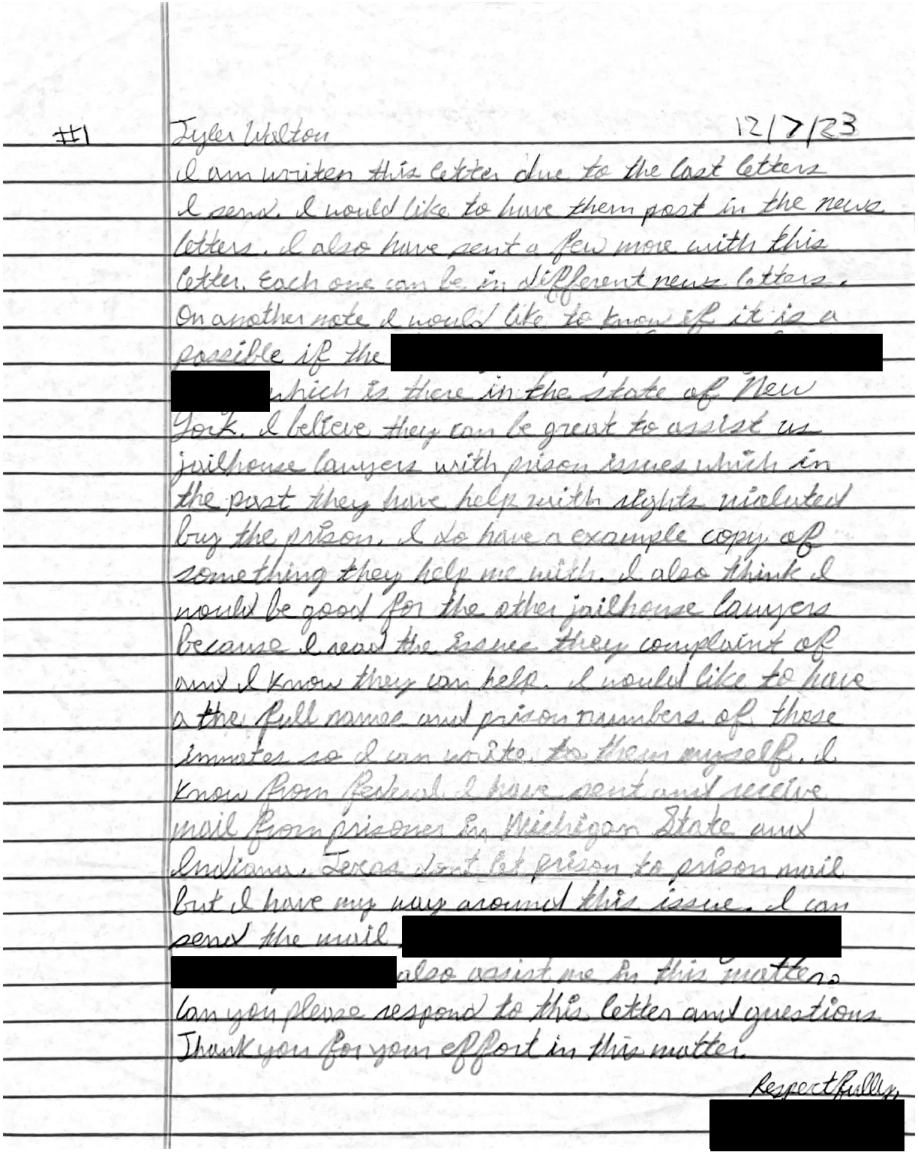 #1 Tyler Walton 12/7/23
I am writen this letter due to the last letters
I send. I would like to have them post in the news
letters. I also have sent a few more with this
letter. Each one can be in different news letters.
On another note I would like to know if it is a
possible if the
which is there in the state of New
York. I believe they can be great to assist us
jailhouse lawyers with prison issues which in
the past they have help with rights violated
buy the prison. I do have a example copy of
something they help me with. I also think I
would be good for the other jailhouse lawyers
because I read the issues they complaint of
and I know they can help. I would like to have
a the full names and prison numbers of those
inmates so I can write to them myself. I
know from federal I have sent and receive
mail from prisoner in Michigan State and
Indiana. Texas don't let prison to prison mail
but I have my way around this issue. I can
send the mail
also assist me in this matter.
Can you please respond to this letter and questions
Thank you for your effort in this matter.
Respectfully,